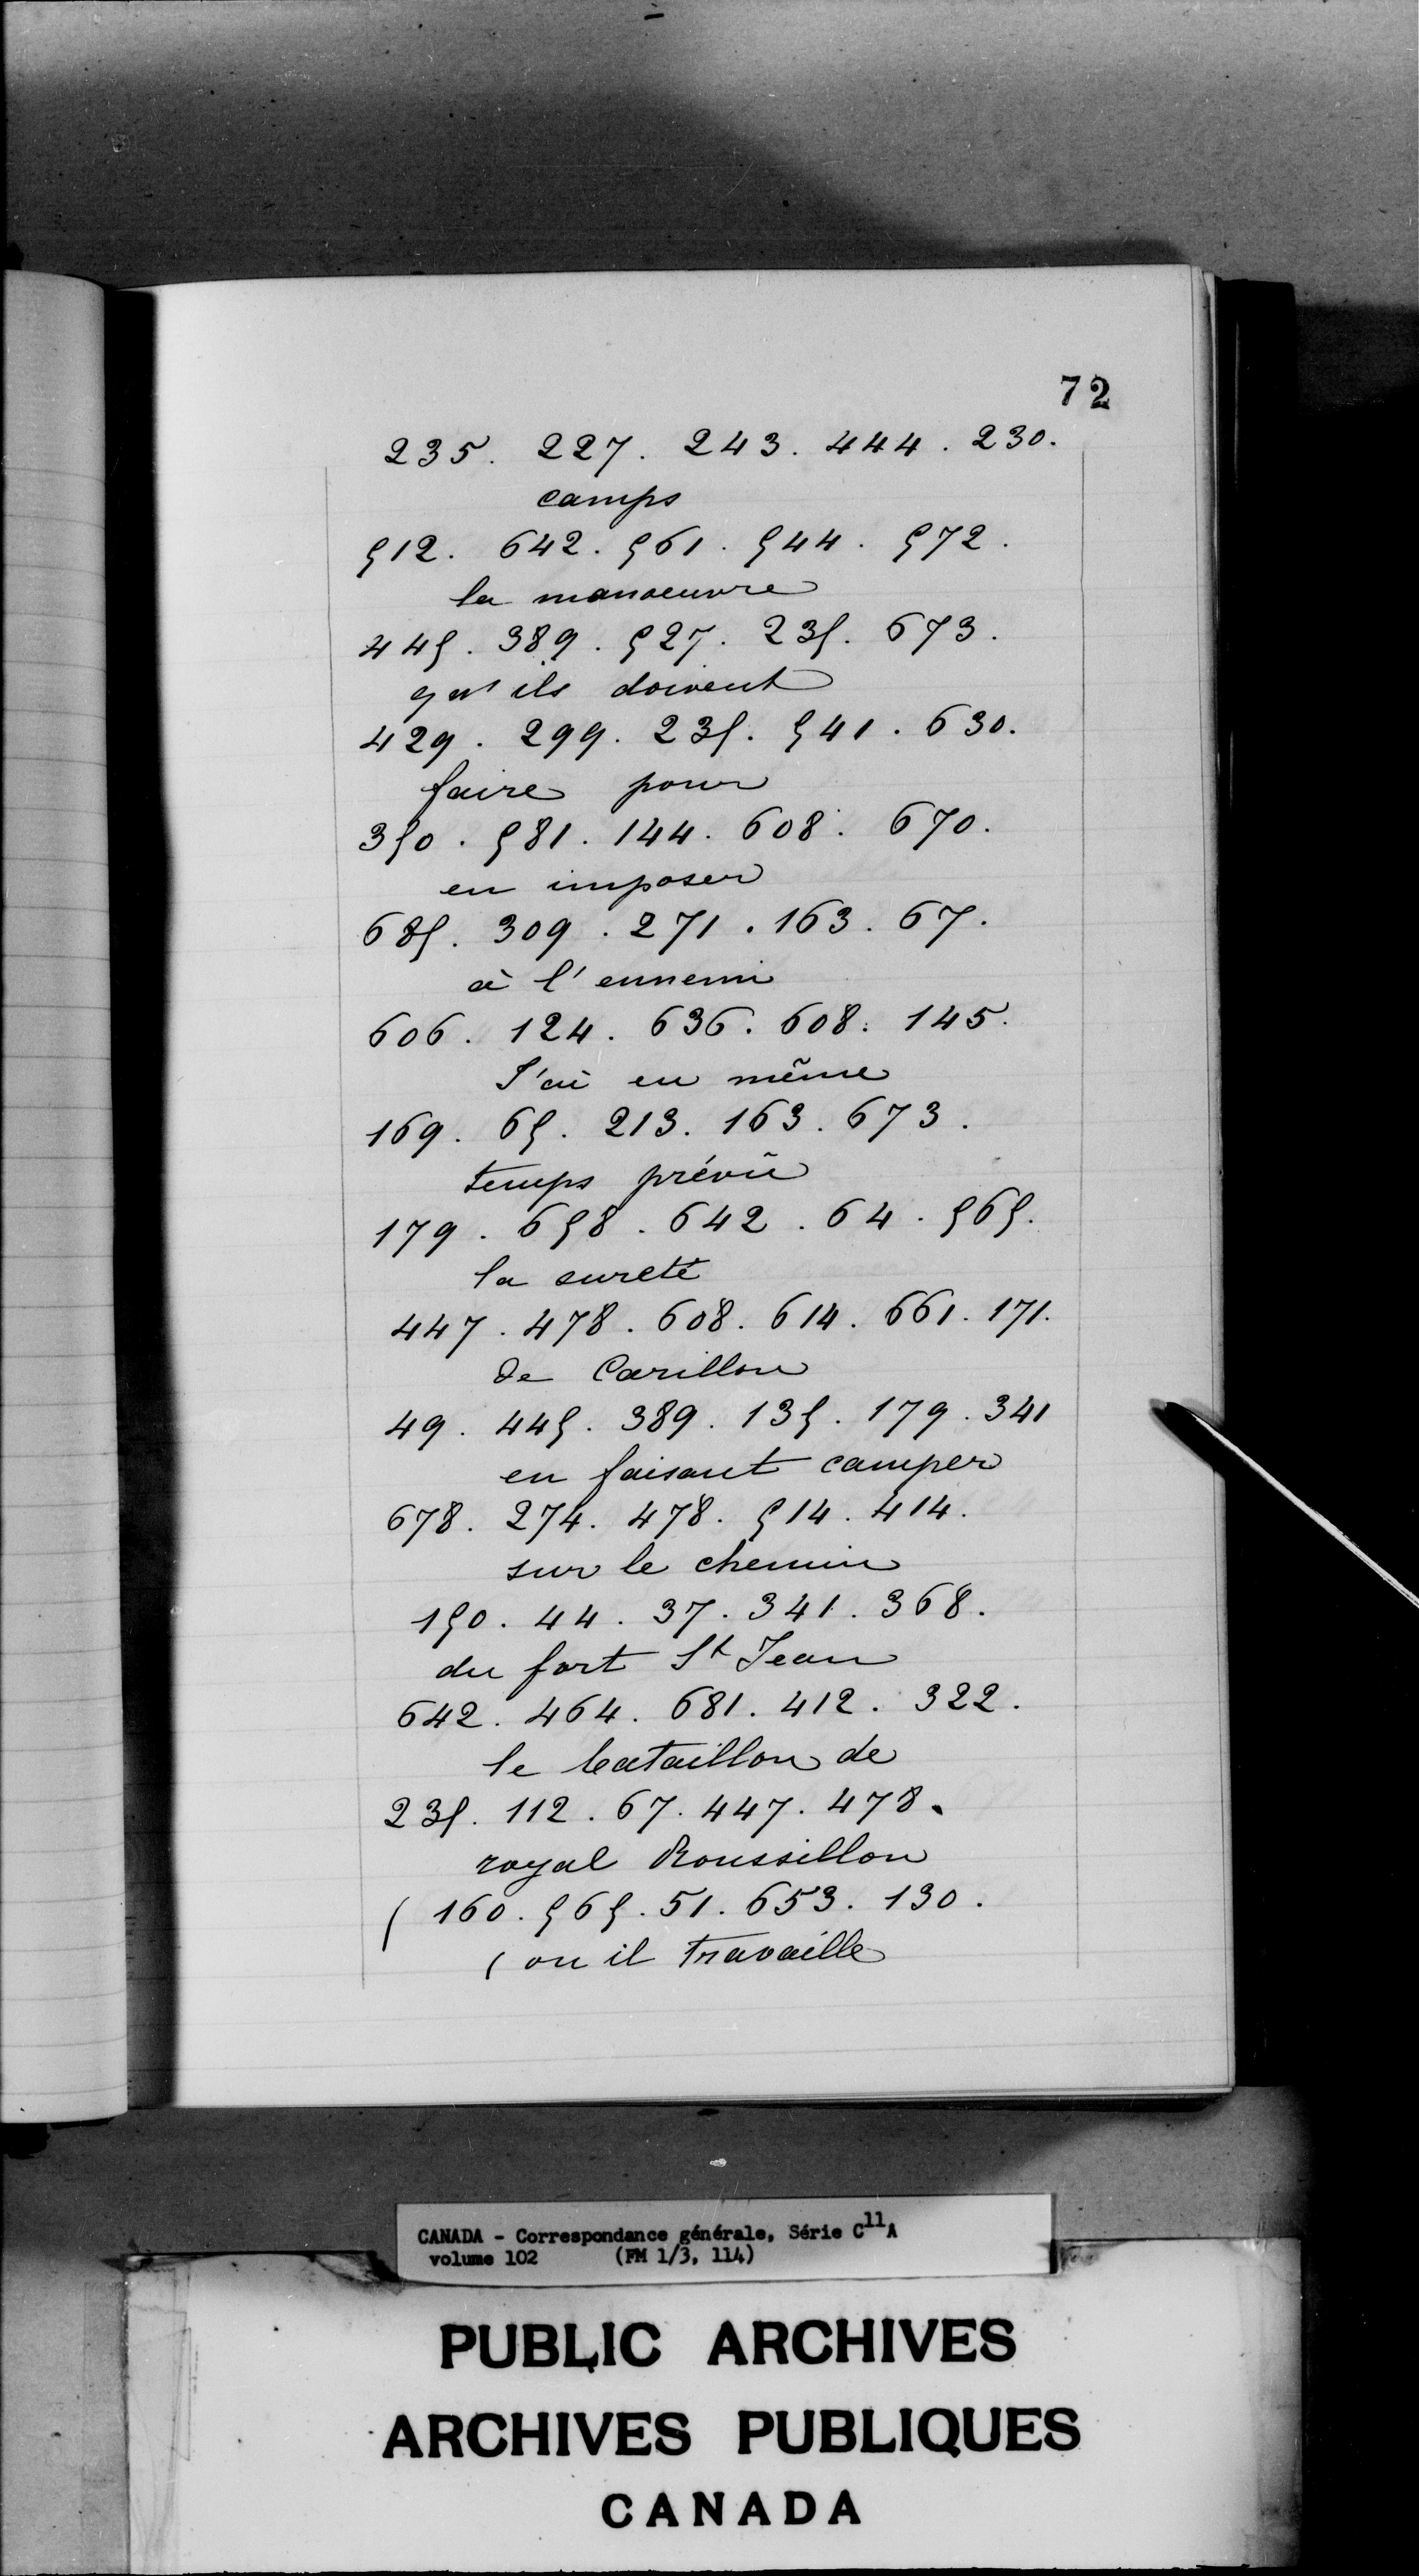 72
235. 227. 243. 444. 230.
camps
512. 642. 561. 544. 572.
la manoeuvre
445. 389. 527. 235. 673.
qu'ils doivent
429. 299. 235. 541. 630.
faire pour
350. 581. 144. 608. 670.
en imposer
685. 309. 271. 163. 67.
à l'ennemi
606. 124. 636. 608. 145.
J'ai en même
169. 65. 213. 163. 673.
temps prévû
179. 658. 642. 64. 565.
la sureté
447. 478. 608. 614. 661. 171.
de Carillon
49. 445. 389. 135. 179. 341
en faisant camper
678. 274. 478. 514. 414.
sur le chemin
150. 44. 37. 341. 368.
du fort St Jean
642. 464. 681. 412. 322.
le bataillon de
235. 112. 67. 447. 478.
royal Roussillon
( 160. 565. 51. 653. 130.
( ou il travaille
CANADA - Correspondance générale, Série C11A
volume 102 (FM 1/3, 114)
PUBLIC ARCHIVES
ARCHIVES PUBLIQUES
CANADA